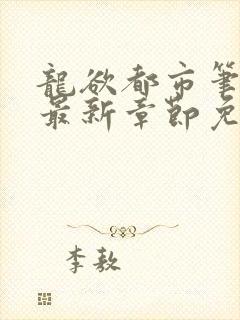 龍欲都市筆
最新章節免
李敖